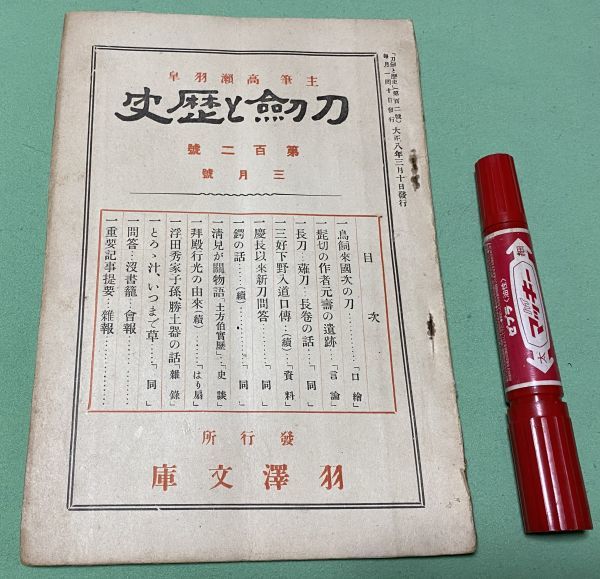 主筆高瀨羽皐
刀劍と歷史
第百二號
三月號
「刀劍と歷史」第百二號 大正八年三月十日發行
每月一回十日發行
目次
一鳥飼來國次の刀…………「口繪」
一髭切の作者元壽の遺跡…「言論」
一長刀…薙刀…長卷の話…「同」
一三好下野入道口傳…(續)…「資料」
一慶長以來新刀問答…………「同」
一鍔の話……(續)……………「同」
一淸見が關物語、土方伯實歷…「史談」
一拜殿行光の由來(續)………「はり扇」
一浮田秀家子孫、勝土器の話「雜錄」
一とろゝ汁、いつまで草……「同」
一問答…沒書籠…會報……………
一重要記事提要…雜報……………
發行所
羽澤文庫
細
ゼブラ
マッキー
太